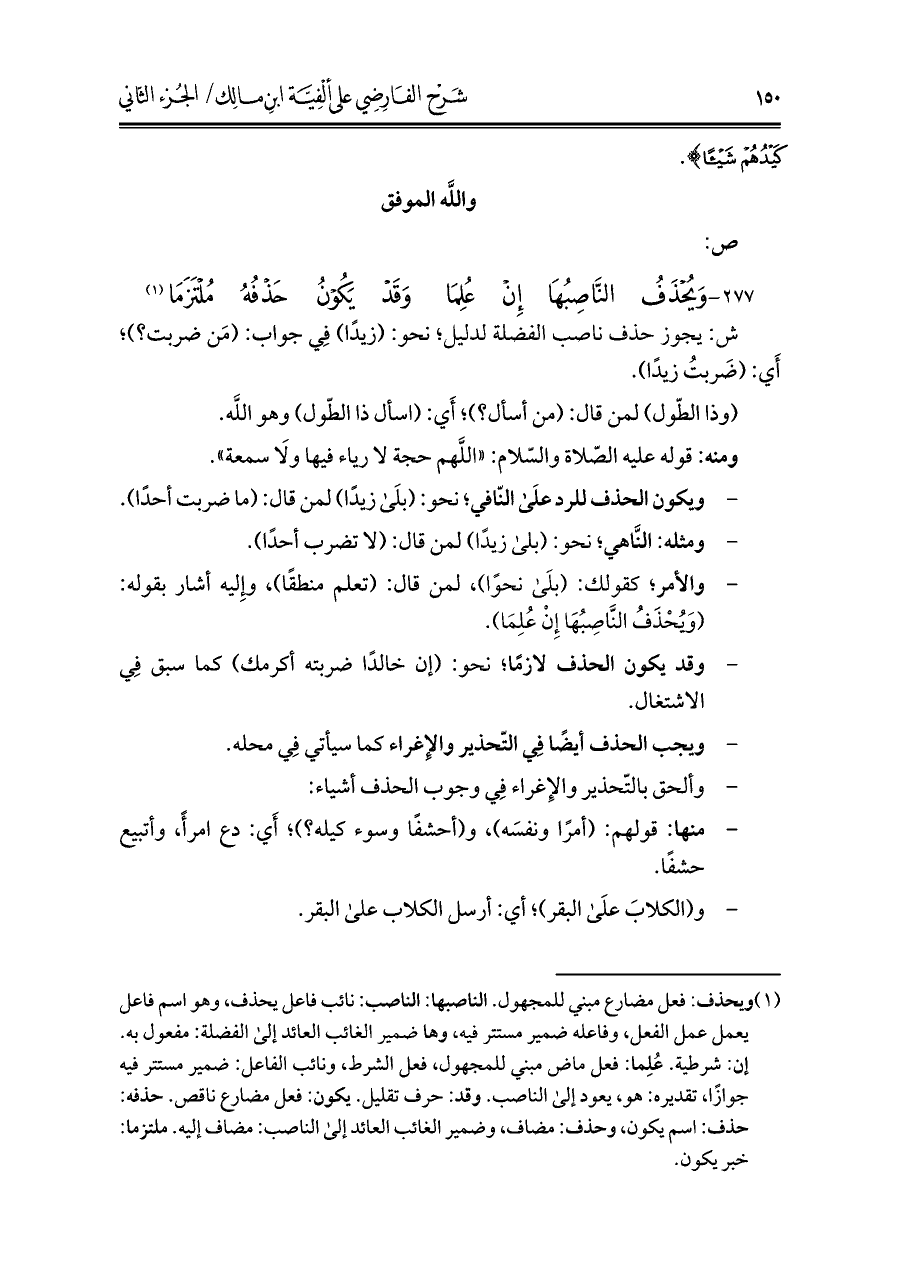 ١٥٠ شَرْح الفَارِضِي على ألْفِيَّة ابنِ مالِك/ الجُزء الثاني
كَيْدُهُمْ شَيْئًا﴾.
واللَّه الموفق
ص:
٢٧٧-وَيُحْذَفُ النَّاصِبُهَا إِنْ عُلِمَا وَقَدْ يَكُوْنُ حَذْفُهُ مُلْتَزَمَا (١)
ش: يجوز حذف ناصب الفضلة لدليل؛ نحو: (زيدًا) فِي جواب: (مَن ضربت؟)؛
أَي: (ضَربتُ زيدًا).
(وذا الطّول) لمن قال: (من أسأل؟)؛ أَي: (اسأل ذا الطول) وهو اللَّه.
ومنه: قوله عليه الصّلاة والسّلام: «اللَّهم حجة لا رياء فيها ولَا سمعة».
– ويكون الحذف للرد علَىٰ النّافي؛ نحو: (بلَىٰ زيدًا) لمن قال: (ما ضربت أحدًا).
– ومثله: النَّاهي؛ نحو: (بلىٰ زيدًا) لمن قال: (لا تضرب أحدًا).
– والأمر؛ كقولك: (بلَىٰ نحوًا)، لمن قال: (تعلم منطقًا)، وإِليه أشار بقوله:
(وَيُحْذَفُ النَّاصِبُهَا إِنْ عُلِمَا).
– وقد يكون الحذف لازمًا؛ نحو: (إن خالدًا ضربته أكرمك) كما سبق فِي
الاشتغال.
– ويجب الحذف أيضًا فِي التّحذير والإِغراء كما سيأتي فِي محله.
– وألحق بالتّحذير والإِغراء فِي وجوب الحذف أشياء:
– منها: قولهم: (أمرًا ونفسَه)، و(أحشفًا وسوء كيله؟)؛ أَي: دع امرأً، وأتبيع
حشفًا.
– و(الكلابَ علَىٰ البقر)؛ أي: أرسل الكلاب علىٰ البقر.
(١) ويحذف: فعل مضارع مبني للمجهول. الناصبها: الناصب: نائب فاعل يحذف، وهو اسم فاعل
يعمل عمل الفعل، وفاعله ضمير مستتر فيه، وها ضمير الغائب العائد إلىٰ الفضلة: مفعول به.
إن: شرطية. عُلِما: فعل ماض مبني للمجهول، فعل الشرط، ونائب الفاعل: ضمير مستتر فيه
جوازًا، تقديره: هو، يعود إلىٰ الناصب. وقد: حرف تقليل. يكون: فعل مضارع ناقص. حذفه:
حذف: اسم يكون، وحذف: مضاف، وضمير الغائب العائد إلىٰ الناصب: مضاف إليه. ملتزما:
خبر يكون.